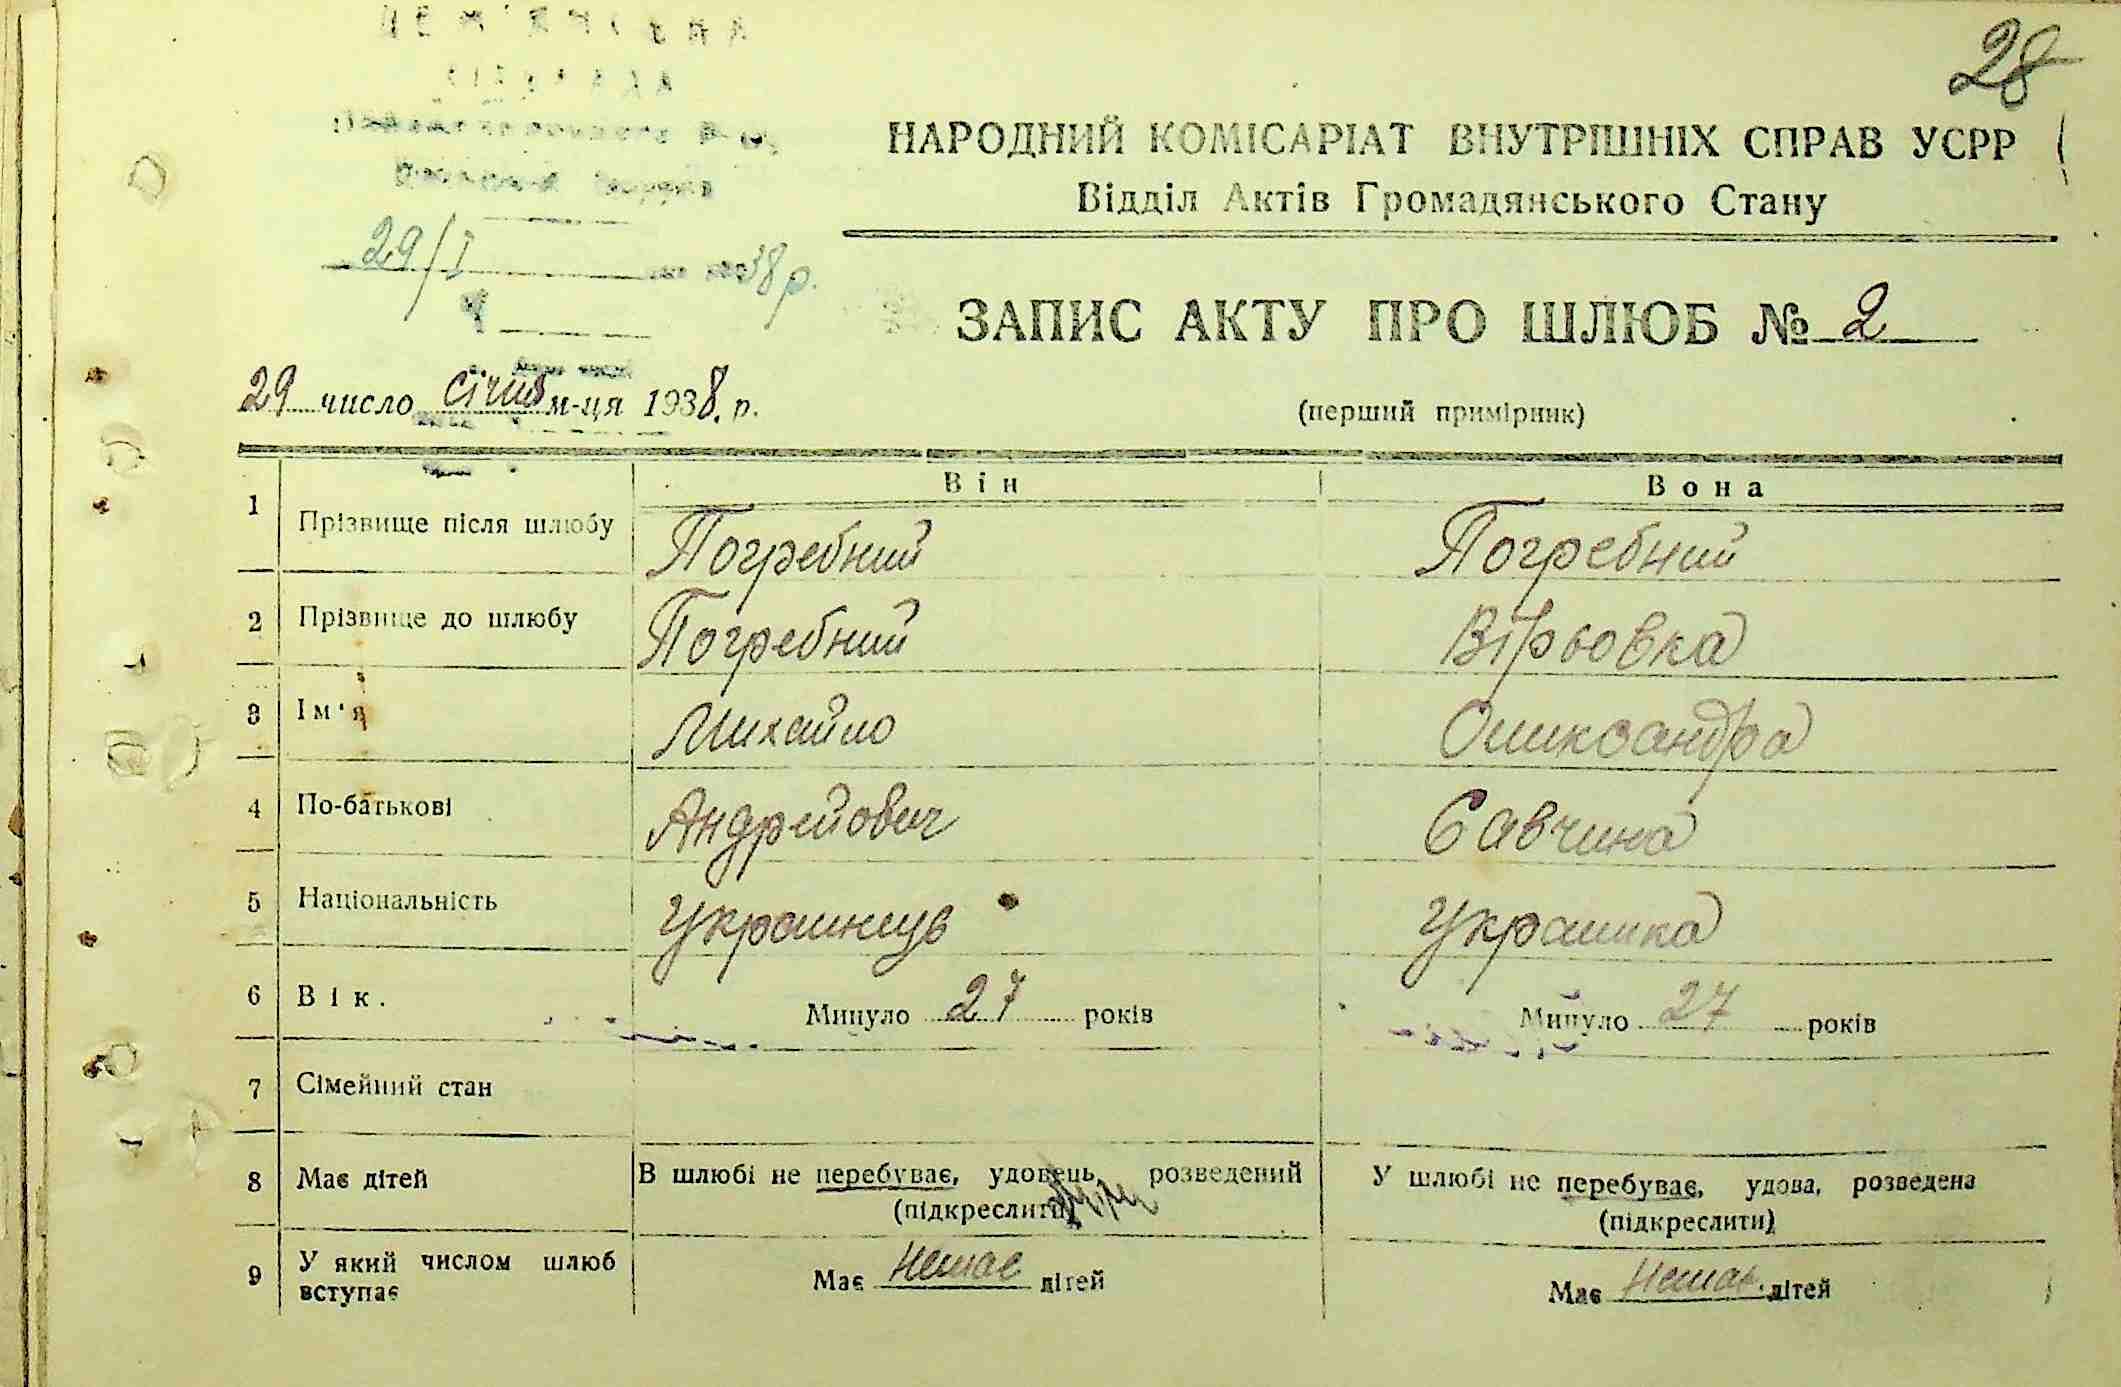 28
НАРОДНИЙ КОМІСАРІАТ ВНУТРІШНІХ СПРАВ УСРР
Відділ Актів Громадянського Стану
29/I 38 р.
ЗАПИС АКТУ ПРО ШЛЮБ № 2
29 число січня м-ця 1938. р.
(перший примірник)
Він Вона
1 Прізвище після шлюбу Погребний Погребний
2 Прізвище до шлюбу Погребний Вірьовка
3 Ім'я Михайло Олександра
4 По-батькові Андрейович Савчина
5 Національність Українець Українка
6 Вік. Минуло 27 років Минуло 27 років
7 Сімейний стан
8 Має дітей В шлюбі не перебуває, удовець, розведений У шлюбі не перебуває, удова, розведена
(підкреслити) (підкреслити)
9 У який числом шлюб вступає Має Немає дітей Має Немає дітей